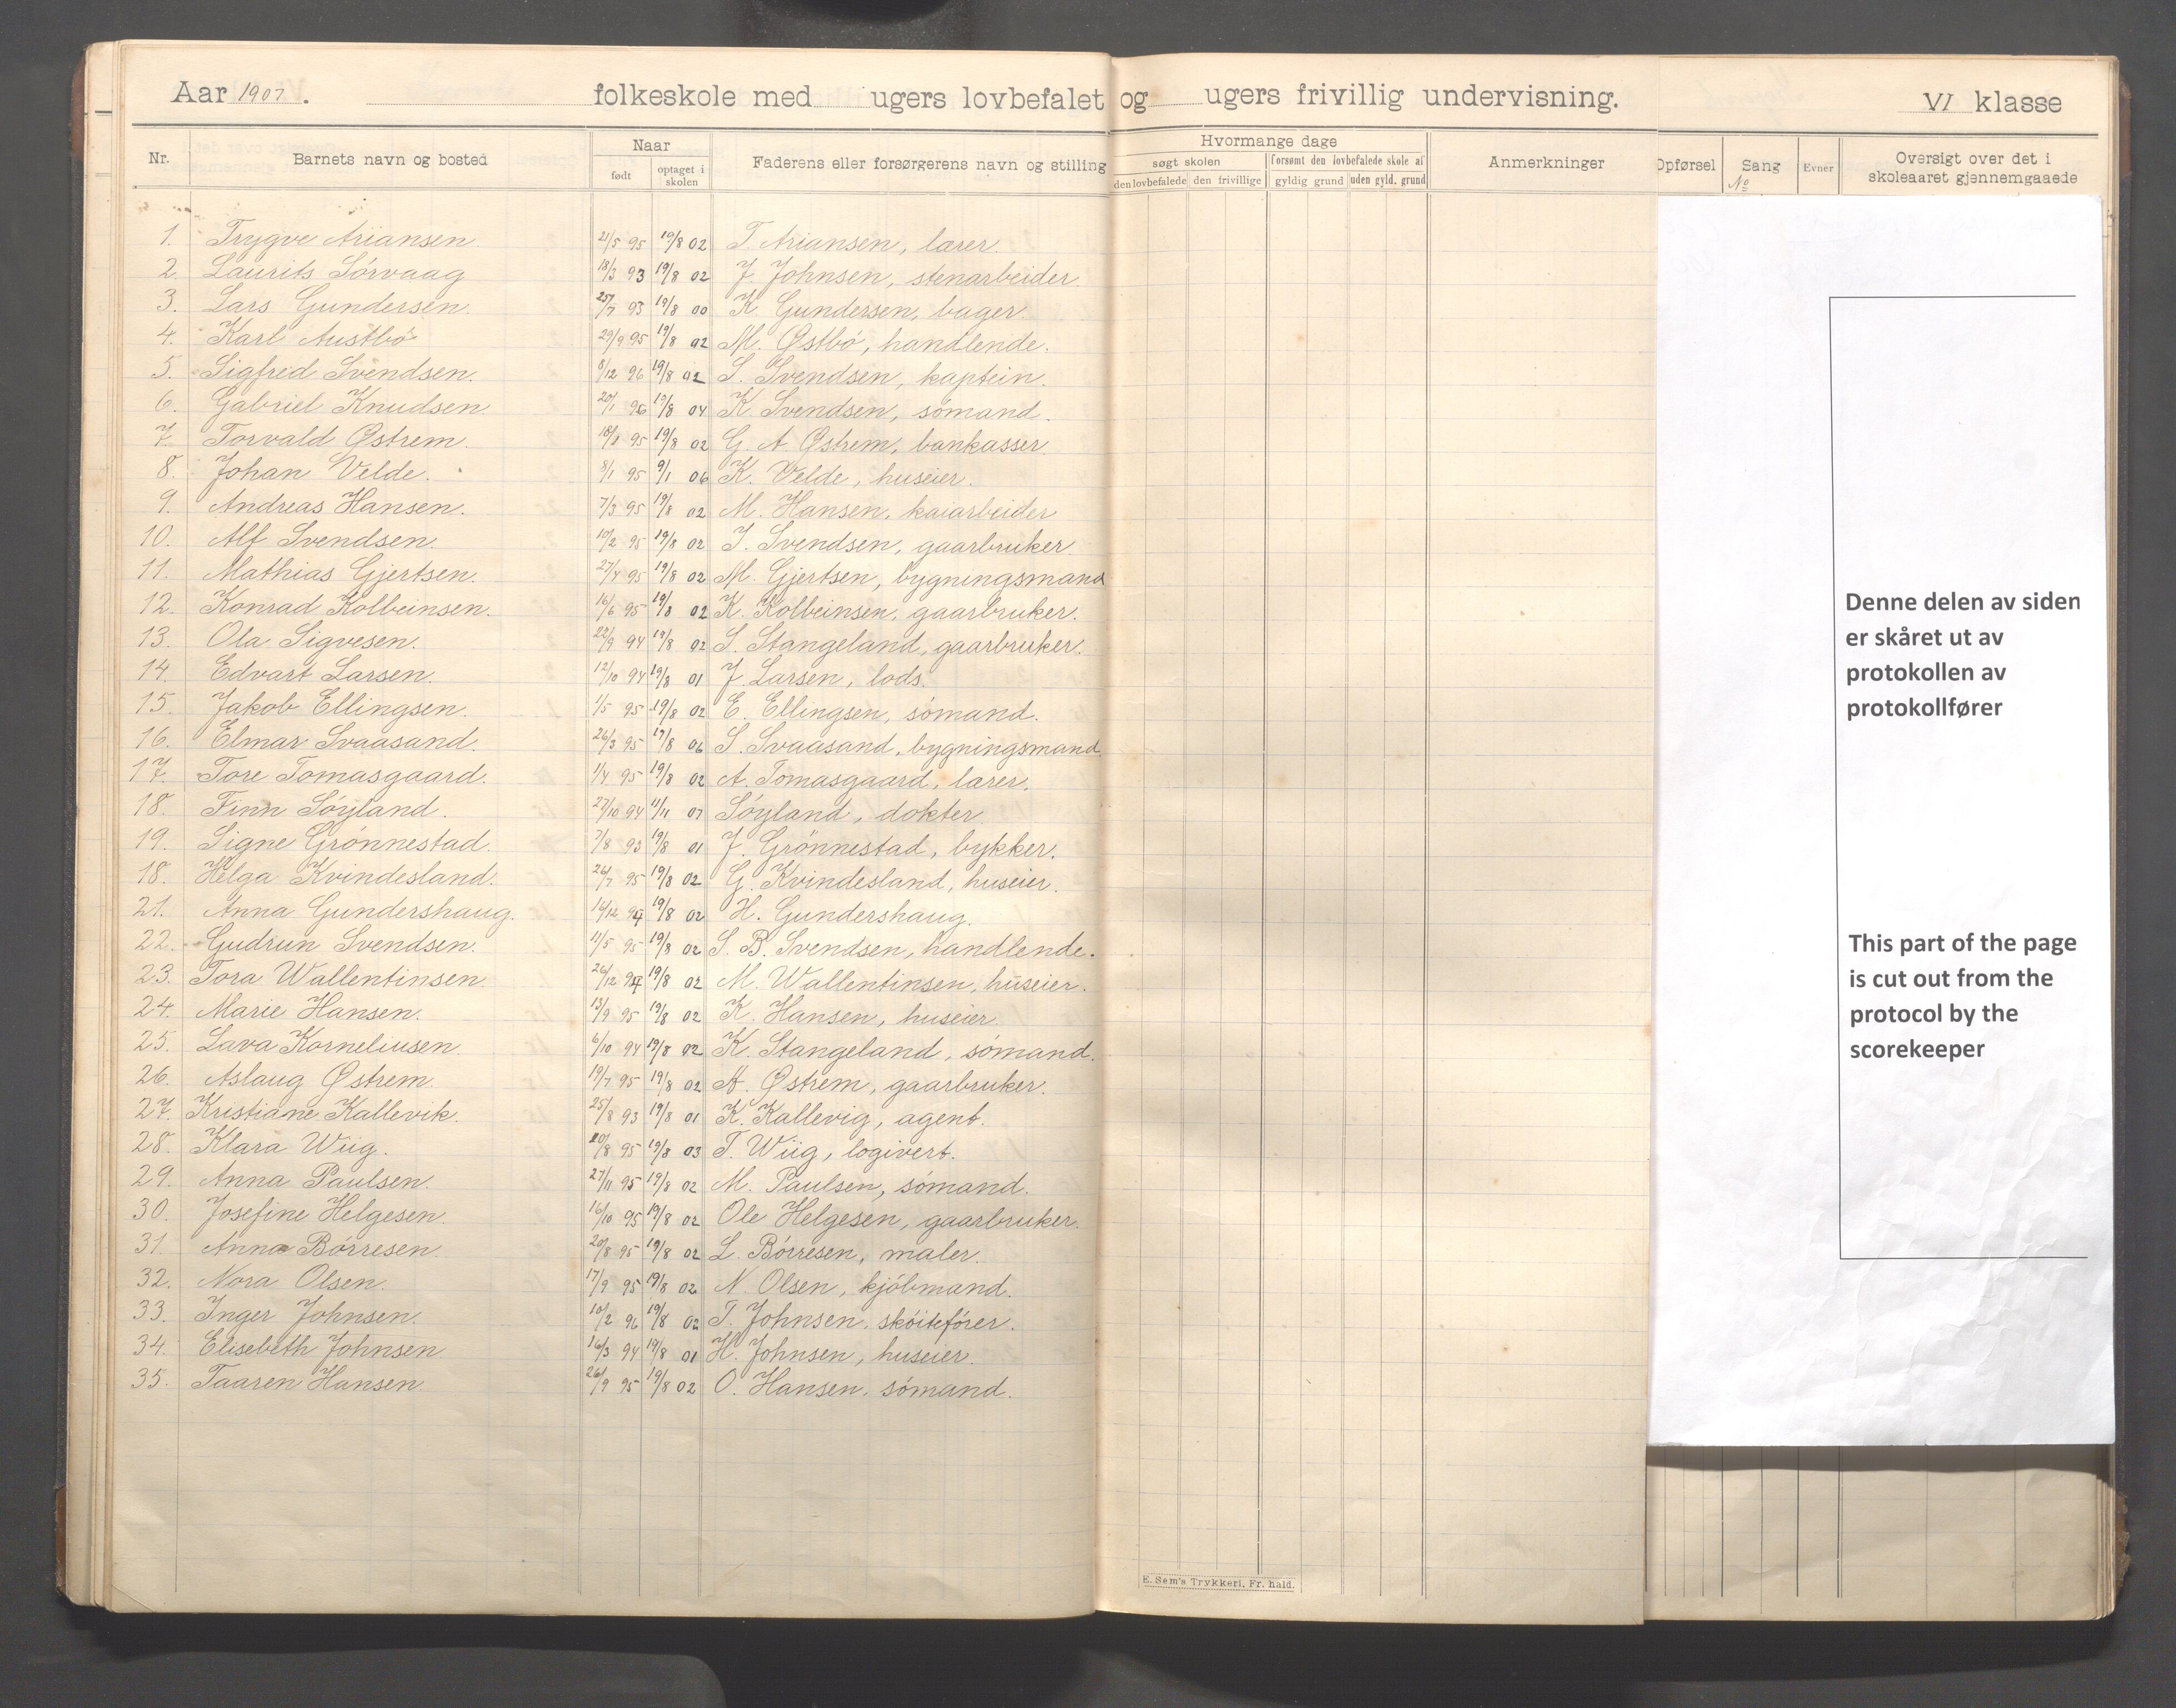 Aar 1907. folkeskole med ugers lovbefalet og ugers frivillig undervisning. VI klasse
Nr. Barnets navn og bosted Naar født optaget i skolen Faderens eller forsørgerens navn og stilling Hvormange dage søgt skolen den lovbefalede den frivillige forsømt den lovbefalede skole af gyldig grund uden gyld. grund Anmerkninger Opførsel Sang No Evner Oversigt over det i skoleaaret gjennemgaaede
1. Trygve Ariansen 21/5 95 19/8 02 T. Ariansen, lærer.
2. Laurits Sörvaag 18/3 93 19/8 02 J. Johnsen, stenarbeider.
3. Lars Gundersen. 25/7 93 19/8 00 K. Gundersen, bager.
4. Karl Austbö 29/9 95 19/8 02 M. Østbö, handlende.
5. Sigfred Svendsen. 8/12 96 19/8 02 S. Svendsen, kaptein.
6. Gabriel Knudsen 20/1 96 19/8 04 K. Svendsen, sömand.
7. Torvald Østrem. 18/8 95 19/8 02 G. A Østrem, bankasser
8. Johan Velde. 8/1 95 9/1 06 K. Velde, huseier.
9. Andreas Hansen. 7/3 95 19/8 02 M. Hansen, kaiarbeider
10. Alf Svendsen. 10/2 95 19/8 02 J. Svendsen, gaarbruker.
11. Mathias Gjertsen. 27/4 95 19/8 02 M. Gjertsen, bygningsmand
12. Konrad Kolbeinsen. 16/6 95 19/8 02 K. Kolbeinsen, gaarbruker.
13. Ola Sigvesen. 22/9 94 19/8 02 S. Stangeland, gaarbruker.
14. Edvart Larsen. 12/10 94 19/8 01 J. Larsen, lods.
15. Jakob Ellingsen. 1/5 95 19/8 02 E. Ellingsen, sömand.
16. Elmar Svaasand. 26/3 95 19/8 06 S. Svaasand, bygningsmand.
17. Tore Tomasgaard. 1/4 95 19/8 02 A. Tomasgaard, lærer.
18. Finn Söyland. 27/10 94 11/11 07 Söyland, dokter.
19. Signe Grönnestad. 7/8 93 19/8 01 J. Grönnestad, bykker.
18. Helga Kvindesland. 26/7 95 19/8 02 G. Kvindesland, huseier.
21. Anna Gundershaug. 14/12 94 19/8 02 H. Gundershaug.
22. Gudrun Svendsen. 11/5 95 19/8 02 S. B. Svendsen, handlende.
23. Tora Wallentinsen 26/12 94 19/8 02 M. Wallentinsen, huseier.
24. Marie Hansen. 13/9 95 19/8 02 K. Hansen, huseier.
25. Lava Korneliusen. 6/10 94 19/8 02 K. Stangeland, sömand.
26. Aslaug Østrem. 19/7 95 19/8 02 A. Østrem, gaarbruker.
27. Kristiane Kallevik. 25/8 93 19/8 01 K. Kallevig, agent.
28. Klara Wiig. 20/8 95 19/8 03 T. Wiig, logivert.
29. Anna Paulsen. 27/11 95 19/8 02 M. Paulsen, sömand.
30. Josefine Helgesen. 16/10 95 19/8 02 Ole Helgesen, gaarbruker.
31. Anna Börresen. 20/8 95 19/8 02 L. Börresen, maler.
32. Nora Olsen. 17/9 95 19/8 02 N. Olsen, kjöbmand.
33. Inger Johnsen. 10/2 96 19/8 02 T. Johnsen, sköiteförer.
34. Elisebeth Johnsen. 16/3 94 19/8 01 H. Johnsen, huseier.
35. Taaren Hansen 26/9 95 19/8 02 O. Hansen, sömand.
E. Sem's Trykkeri, Fr. hald.
Denne delen av siden
er skåret ut av
protokollen av
protokollfører
This part of the page
is cut out from the
protocol by the
scorekeeper